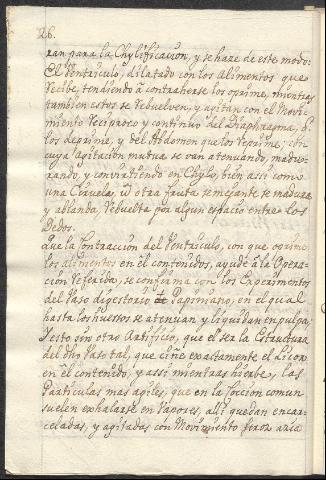 26.
ran para la Chylificacion, y se haze de este modo:
El Ventriculo, dilatado con los Alimentos que
recibe, tendiendo â contraherse los oprime, mientras
tambien estos se rebuelven, y agitan con el Movi-
miento reciproco y continuo del Diaphragma, q.
los deprime, y del Abdomen que los reprime, con
cuya Agitacion mutua se van atenuando, madu-
rando, y convirtiendo en Chylo, bien assi como
una Ciruela, û otra fruta semejante se madura
y ablanda, rebuelta por algun espacio entre los
Dedos.
Que la Contraccion del Ventriculo, con que oprime
los alimentos en êl contenidos, ayude â la Opera-
cion referida, se confirma con los Experimentos
del Vaso digestorio de Papiniano, en el qual
hasta los huessos se atenúan y liquidan en pulpa;
Y esto sin otro Artificio, que el ser la Estructura
del dho Vaso tal, que ciñe exactamente el Licor
en êl contenido, y assi mientras hierbe, las
Particulas mas agiles, que en la Coccion comun
suelen exhalarse en Vapores, alli quedan encar-
celadas, y agitadas con Movimiento feroz azia